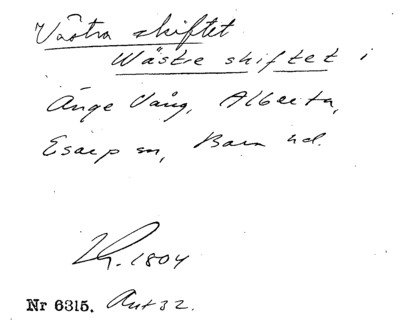 Västra skiftet
Wästre skiftet i
Änge Vång, Alberta,
Esarp sn, Bara hd.
1804
Nr 6315. Akt 32.